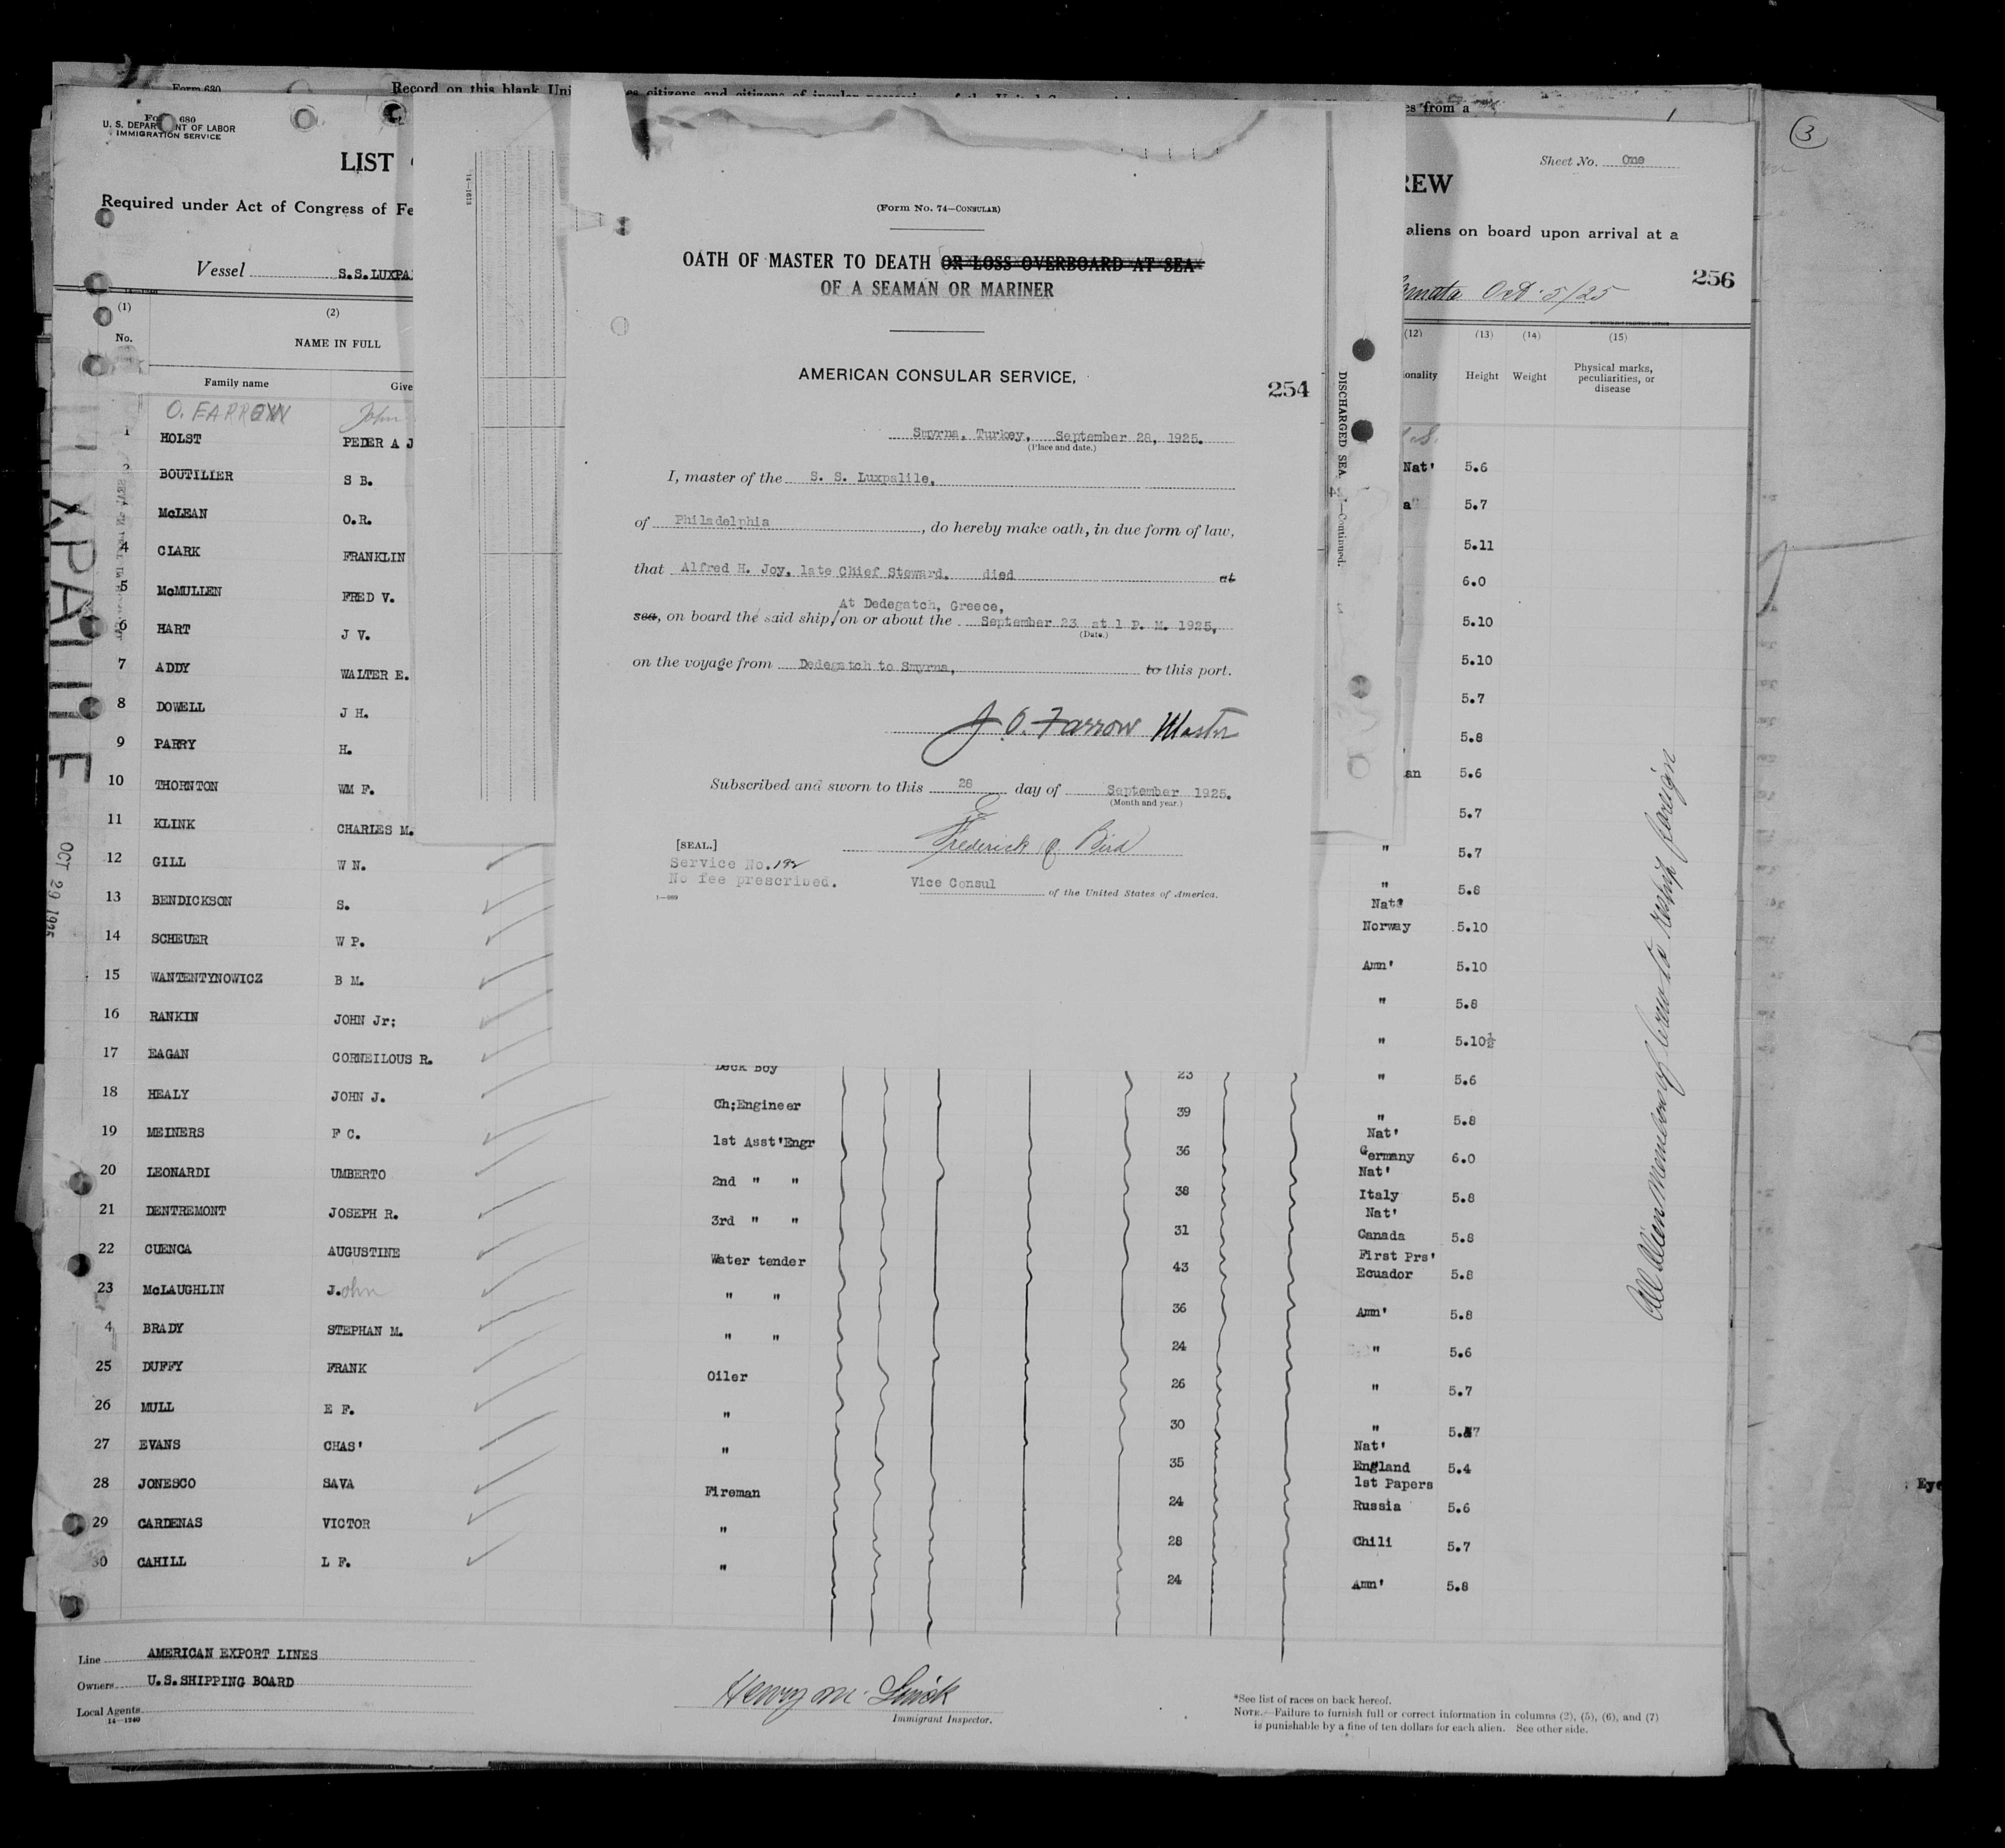 Form 630
Record on this blank Uni
es citizens and citizens of insular possessions of the United S
es from a
3
680
U. S. DEPARTMENT OF LABOR
IMMIGRATION SERVICE
LIST
Required under Act of Congress of Fe
Vessel S.S.LUXPA
(1)
(2)
No.
NAME IN FULL
Family name
Give
O. FARROW John
1 HOLST PEDER A J
2 BOUTILIER S B.
McLEAN O.R.
4 CLARK FRANKLIN
5 McMULLEN FRED V.
6 HART J V.
7 ADDY WALTER E.
8 DOWELL J H.
9 PARRY H.
10 THORNTON WM F.
11 KLINK CHARLES M.
12 GILL W N.
13 BENDICKSON S.
14 SCHEUER W P.
15 WANTENTYNOWICZ B M.
16 RANKIN JOHN Jr;
17 EAGAN CORNEILOUS R.
18 HEALY JOHN J.
19 MEINERS F C.
20 LEONARDI UMBERTO
21 DENTREMONT JOSEPH R.
22 CUENCA AUGUSTINE
23 McLAUGHLIN J.ohn
4 BRADY STEPHAN M.
25 DUFFY FRANK
26 MULL E F.
27 EVANS CHAS'
28 JONESCO SAVA
29 CARDENAS VICTOR
30 CAHILL L F.
XPALILE
OCT 29 1925
14—1613
(Form No. 74—Consular)
OATH OF MASTER TO DEATH OR LOSS OVERBOARD AT SEA
OF A SEAMAN OR MARINER
AMERICAN CONSULAR SERVICE,
254
Smyrna, Turkey, September 28, 1925.
(Place and date.)
I, master of the S. S. Luxpalile,
of Philadelphia, do hereby make oath, in due form of law,
that Alfred H. Joy, late Chief Steward, died at
At Dedegatch, Greece,
sea, on board the said ship/on or about the September 23 at 1 P. M. 1925,
(Date.)
on the voyage from Dedegatch to Smyrna, to this port.
J O. Farrow Master
Subscribed and sworn to this 28 day of September 1925.
(Month and year.)
[SEAL.]
Frederick O Bird
Service No. 192
No fee prescribed.
Vice Consul of the United States of America.
1—089
DISCHARGED SEA
—Continued.
Sheet No. One
REW
aliens on board upon arrival at a
256
Oct. 5/25
(12) (13) (14) (15)
ionality Height Weight Physical marks, peculiarities, or disease
Nat' 5.6
5.7
5.11
6.0
5.10
5.10
5.7
5.8
an 5.6
5.7
" 5.7
" 5.8
Nat'
Norway 5.10
Amn' 5.10
" 5.8
" 5.10½
Deck Boy 23 " 5.6
Ch;Engineer 39 " 5.8
Nat'
1st Asst'Engr 36 Germany 6.0
Nat'
2nd " " 38 Italy 5.8
Nat'
3rd " " 31 Canada 5.8
First Prs'
Water tender 43 Ecuador 5.8
" " 36 Amn' 5.8
" " 24 " 5.6
Oiler 26 " 5.7
" 30 " 5.7
Nat'
" 35 England 5.4
1st Papers
Fireman 24 Russia 5.6
" 28 Chili 5.7
" 24 Amn' 5.8
All Alien Members of Crew to reship foreign
Eye
Line AMERICAN EXPORT LINES
Owners U.S.SHIPPING BOARD
Local Agents
14—1240
Henry M.
Immigrant Inspector.
*See list of races on back hereof.
NOTE.—Failure to furnish full or correct information in columns (2), (5), (6), and (7)
is punishable by a fine of ten dollars for each alien. See other side.